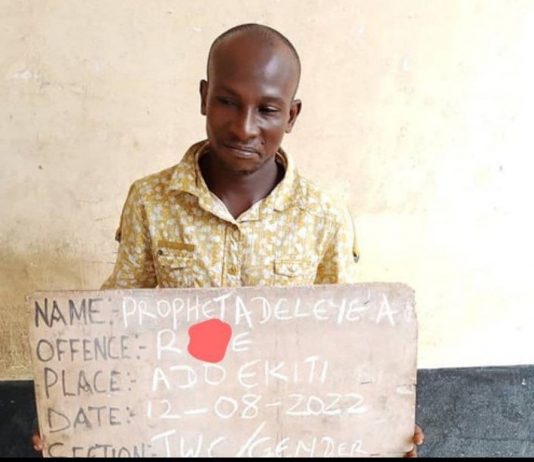 NAME:- PROPHET ADELEYE A
OFFENCE:- R E
PLACE:- ADO EKITI
DATE:- 12-08-2022
SECTION:- JWC/GENDER